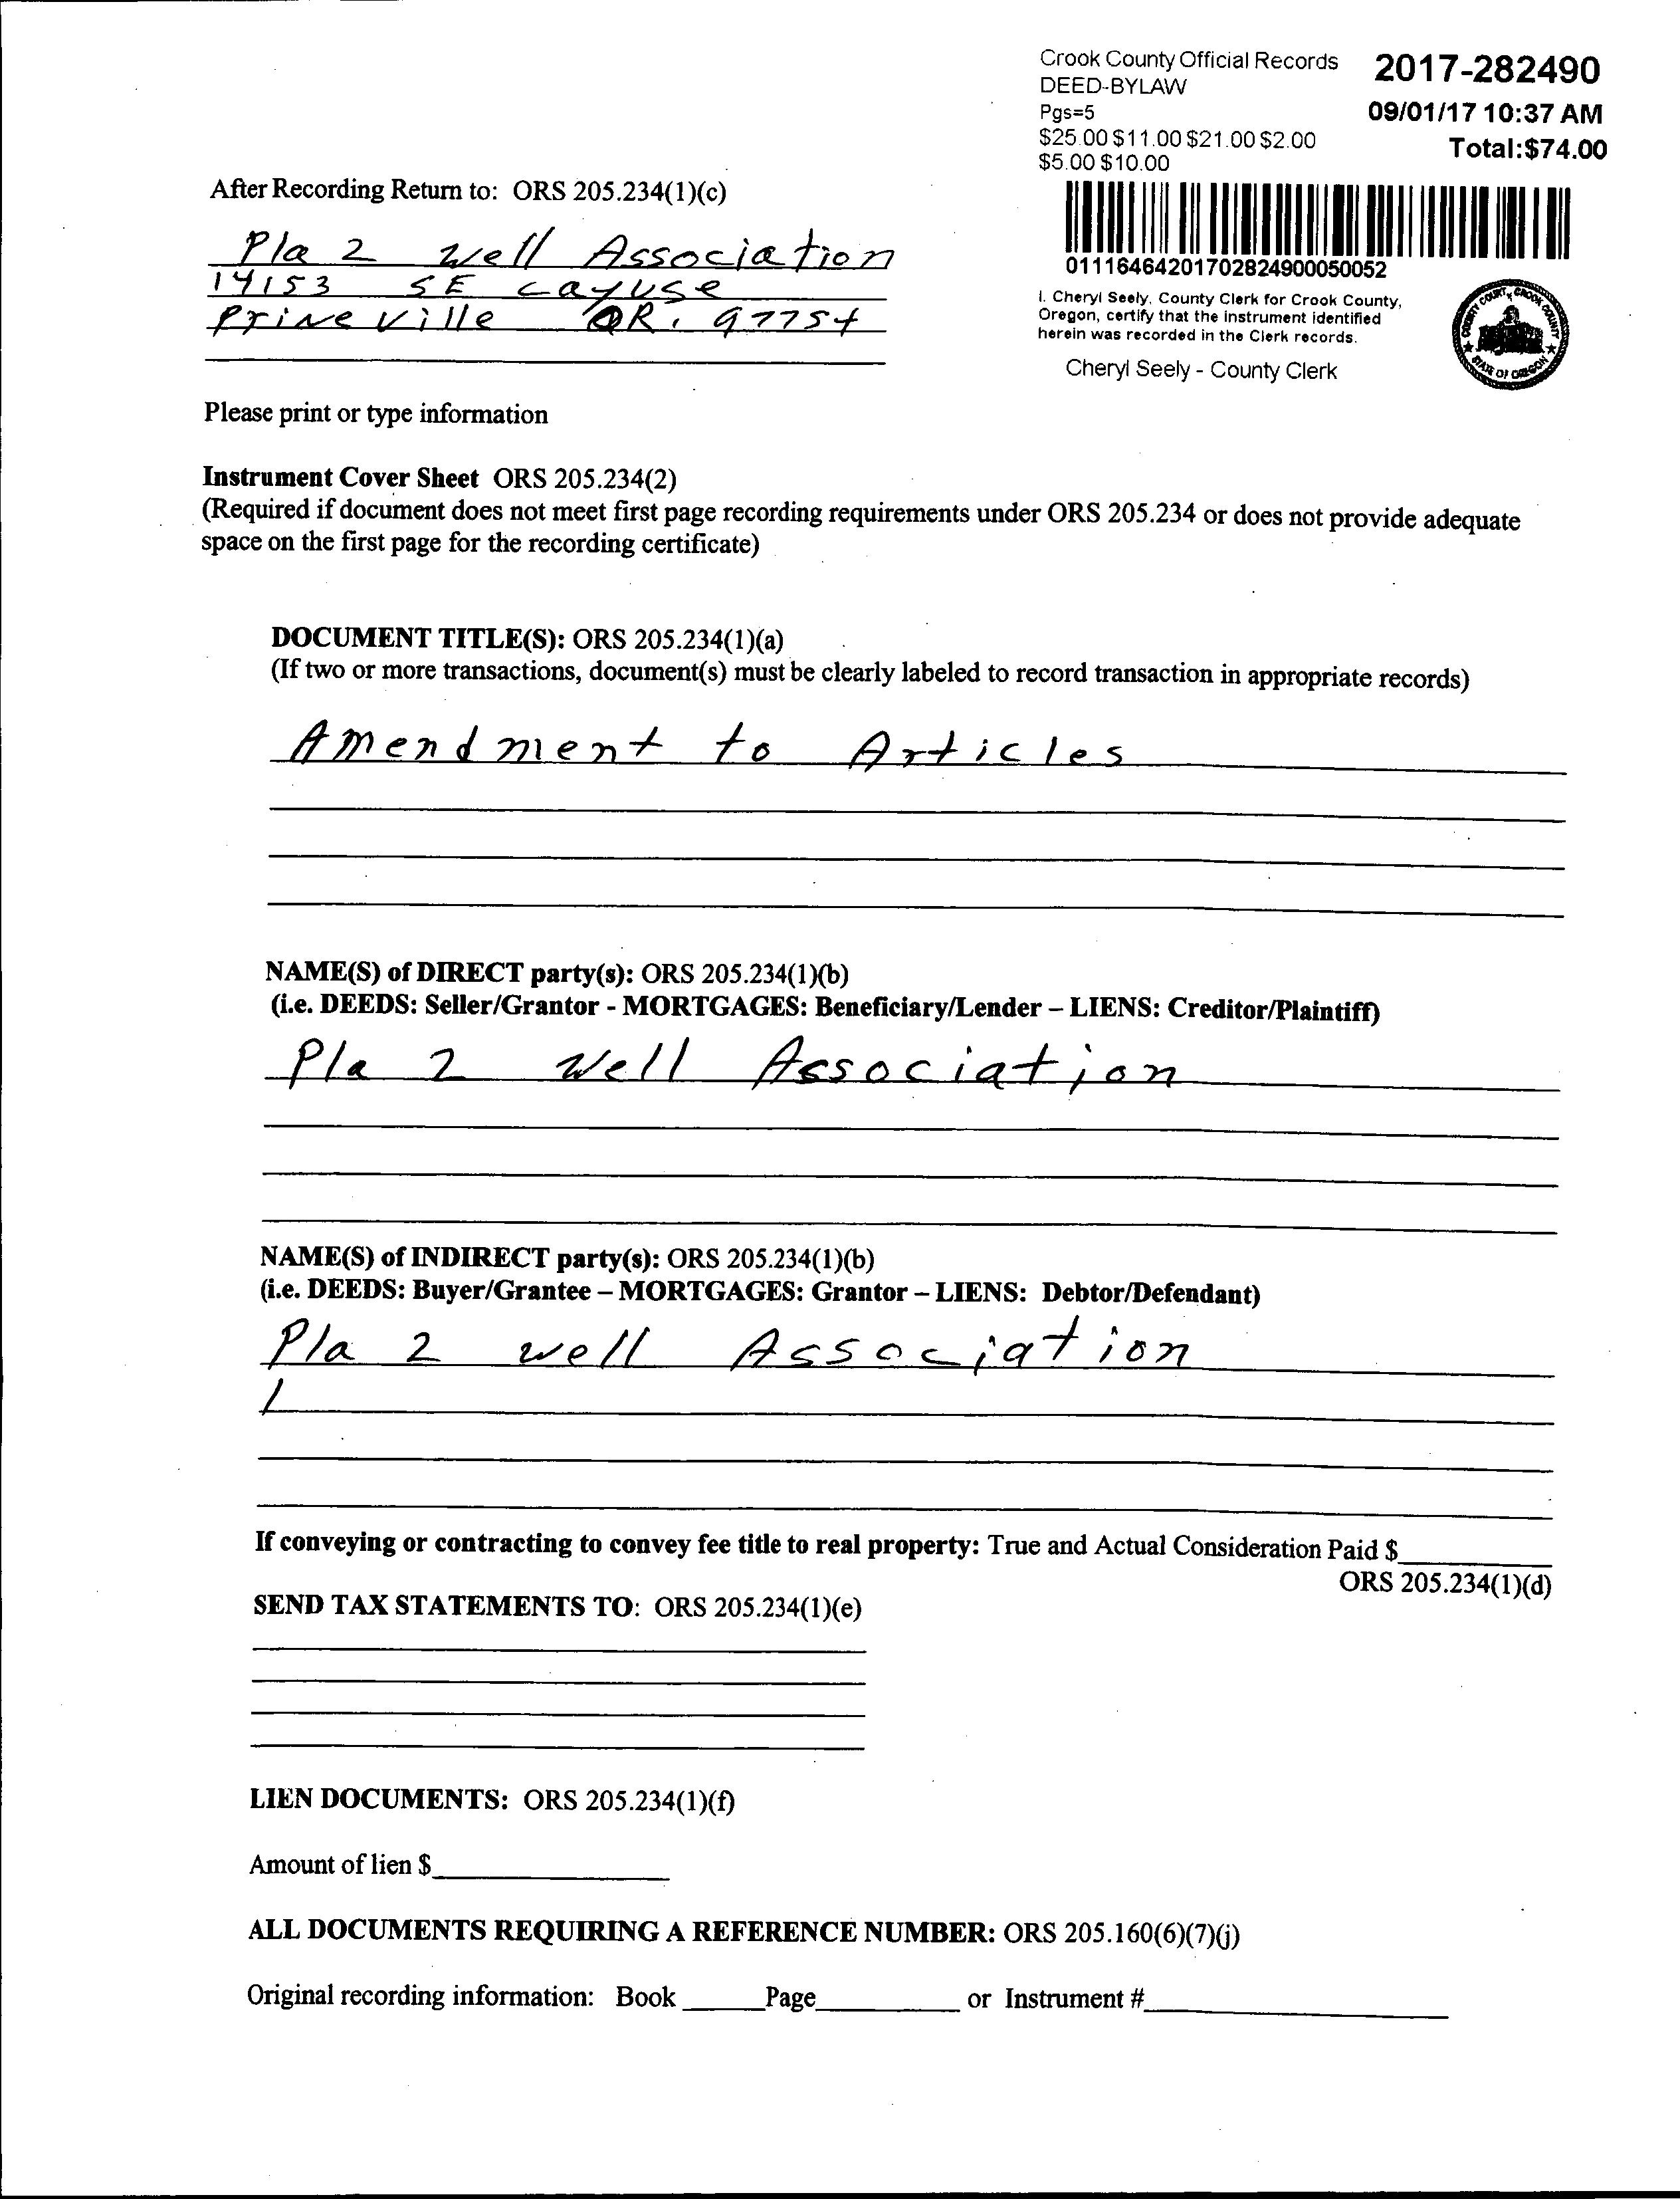 Crook County Official Records
DEED-BYLAW
Pgs=5
$25.00 $11.00 $21.00 $2.00
$5.00 $10.00
2017-282490
09/01/17 10:37 AM
Total:$74.00
01116464201702824900050052
I, Cheryl Seely, County Clerk for Crook County,
Oregon, certify that the instrument identified
herein was recorded in the Clerk records.
Cheryl Seely - County Clerk
COUNTY COURT, CROOK COUNTY
STATE OF OREGON
After Recording Return to: ORS 205.234(1)(c)
Pla 2 well Association
14153 SE cayuse
Prineville OR. 97754
Please print or type information
Instrument Cover Sheet ORS 205.234(2)
(Required if document does not meet first page recording requirements under ORS 205.234 or does not provide adequate
space on the first page for the recording certificate)
DOCUMENT TITLE(S): ORS 205.234(1)(a)
(If two or more transactions, document(s) must be clearly labeled to record transaction in appropriate records)
Amendment to Articles
NAME(S) of DIRECT party(s): ORS 205.234(1)(b)
(i.e. DEEDS: Seller/Grantor - MORTGAGES: Beneficiary/Lender – LIENS: Creditor/Plaintiff)
Pla 2 Well Association
NAME(S) of INDIRECT party(s): ORS 205.234(1)(b)
(i.e. DEEDS: Buyer/Grantee – MORTGAGES: Grantor – LIENS: Debtor/Defendant)
Pla 2 well Association
If conveying or contracting to convey fee title to real property: True and Actual Consideration Paid $
ORS 205.234(1)(d)
SEND TAX STATEMENTS TO: ORS 205.234(1)(e)
LIEN DOCUMENTS: ORS 205.234(1)(f)
Amount of lien $
ALL DOCUMENTS REQUIRING A REFERENCE NUMBER: ORS 205.160(6)(7)(j)
Original recording information: Book ______Page__________ or Instrument #